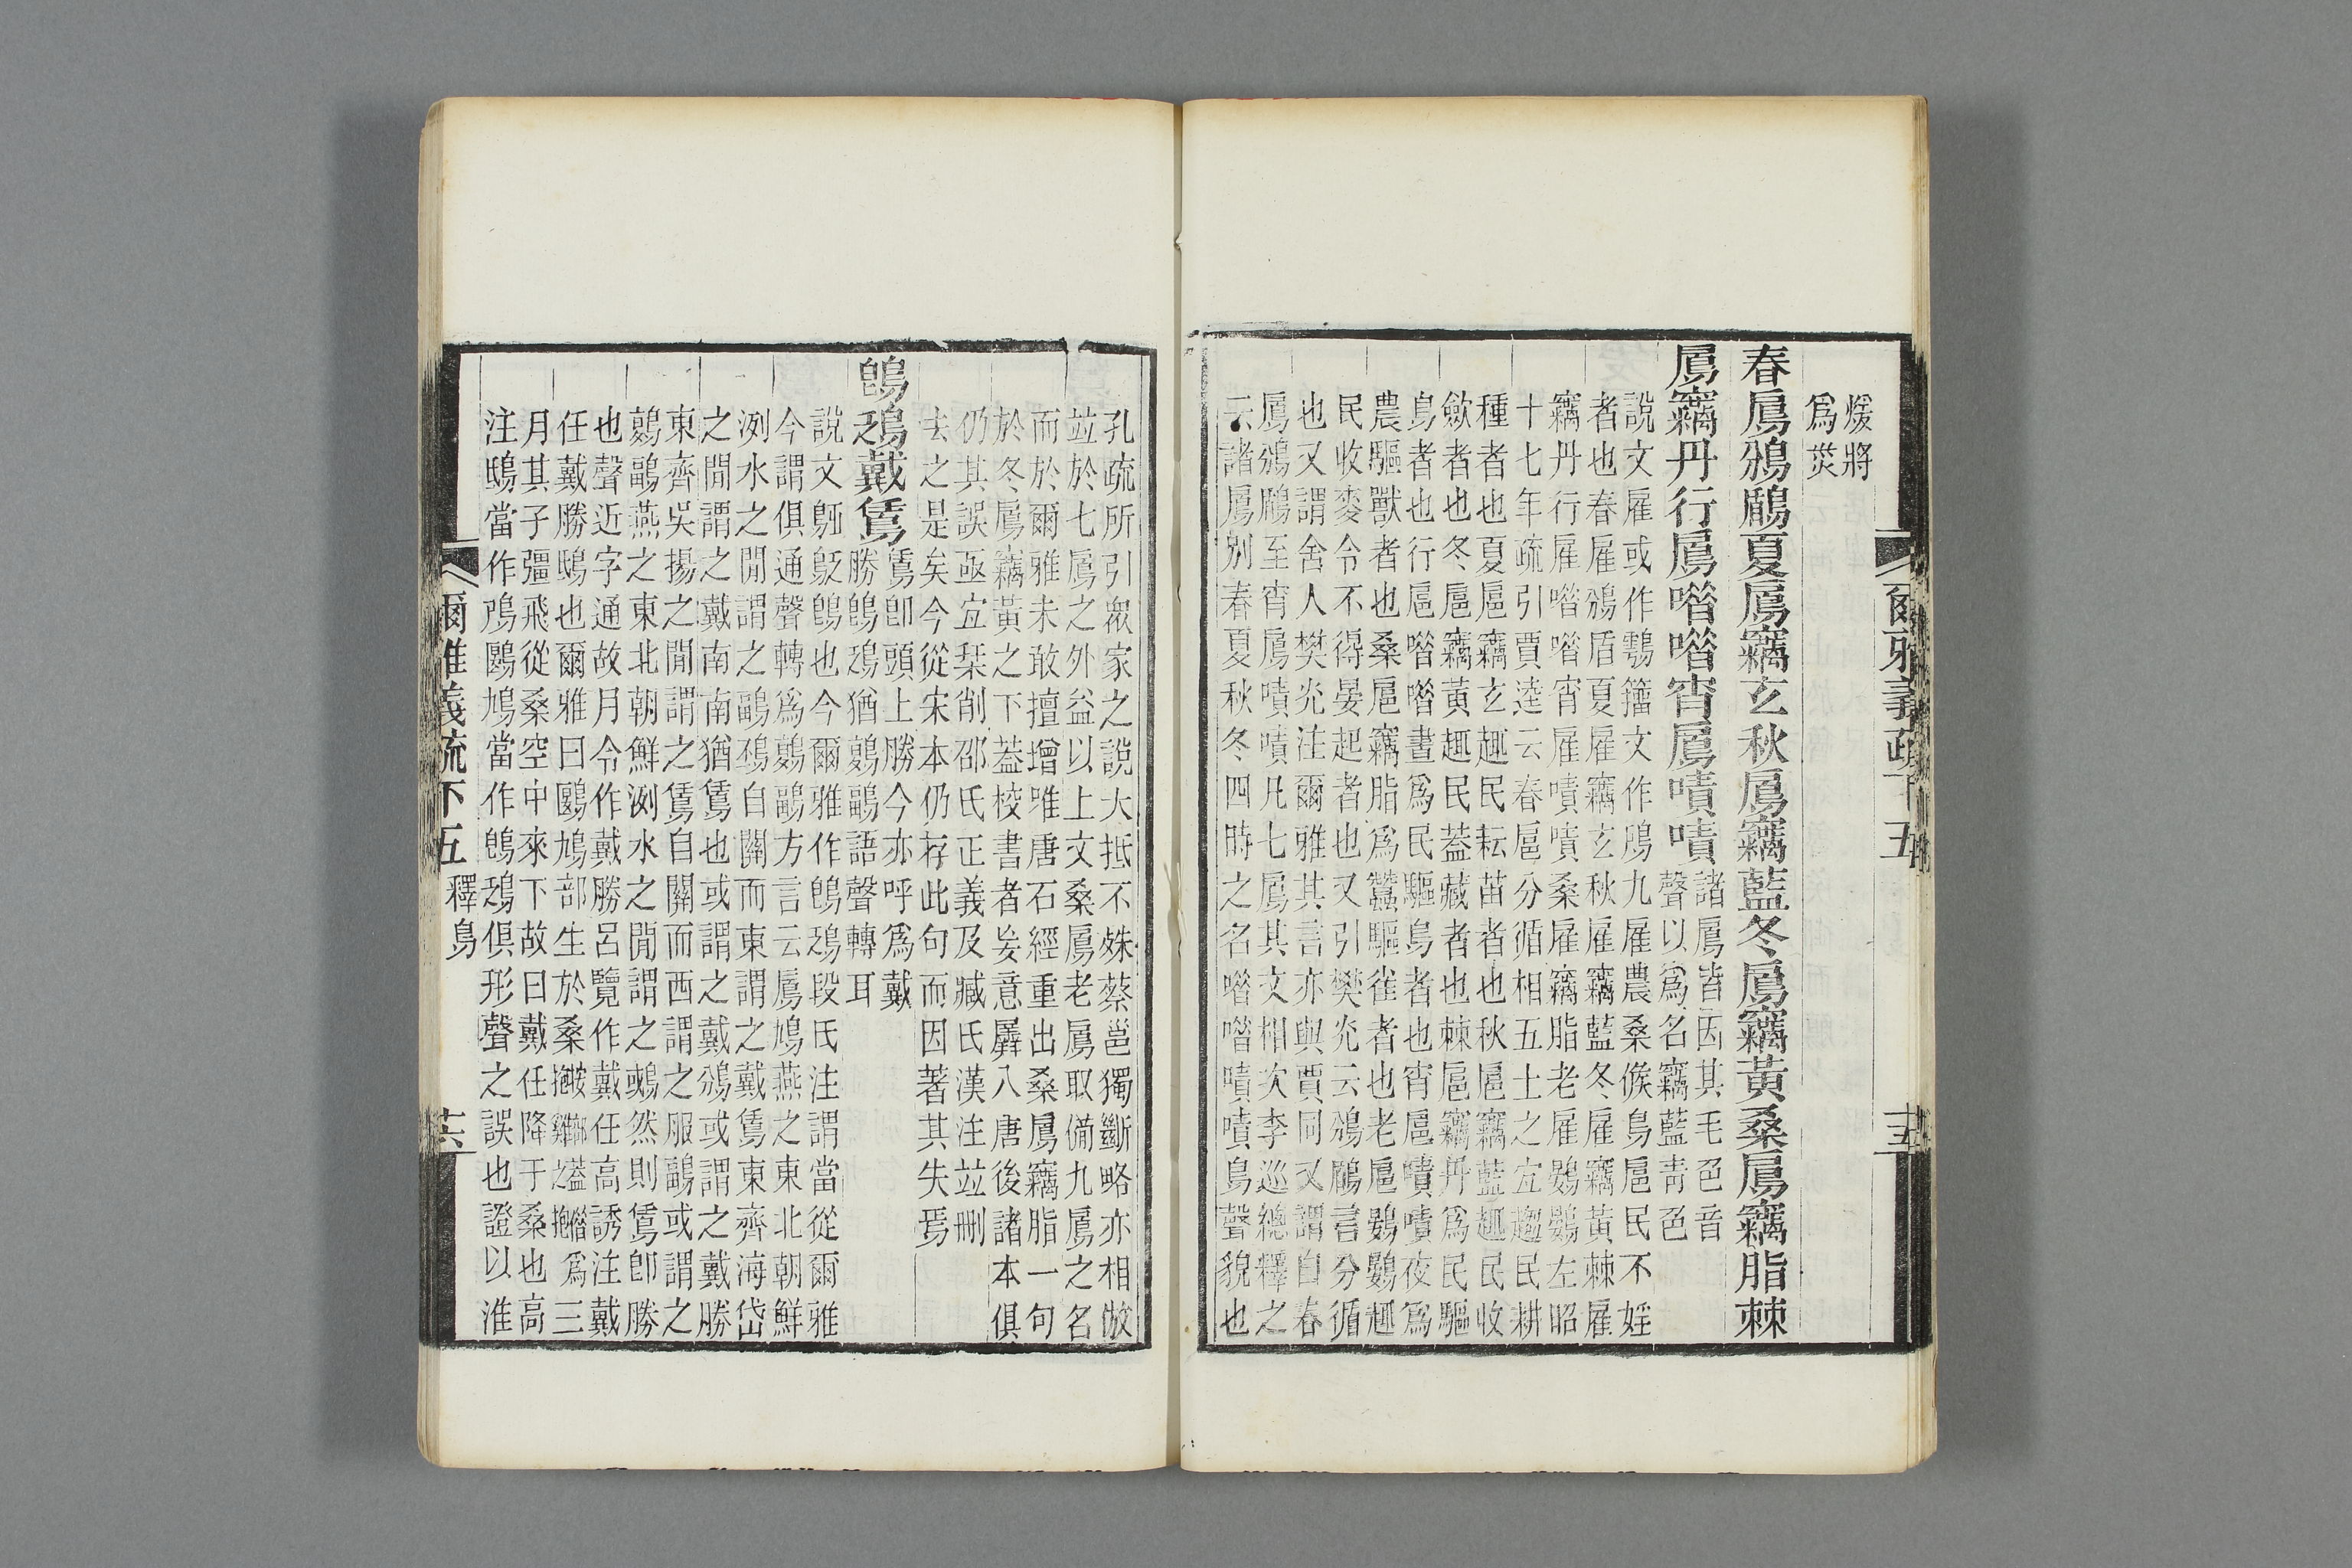 爾雅義疏下五 十五
煖將
爲
春鳸鳻鶞夏鳸竊玄秋鳸竊藍冬鳸竊黃桑鳸竊脂棘
鳸竊丹行鳸唶唶宵鳸嘖嘖
諸鳸皆因其毛色音
聲以爲名竊藍青色
說文雇或作䨼籒文作鳸九雇農桑候鳥扈民不婬
者也春雇鳻盾夏雇竊玄秋雇竊藍冬雇竊黃棘雇
竊丹行雇唶唶宵雇嘖嘖桑雇竊脂老雇鷃鷃左昭
十七年疏引賈逵云春扈分循相五土之宜趨民耕
種者也夏扈竊玄趣民耘苗者也秋扈竊藍趣民收
斂者也冬扈竊黃趣民蓋藏者也棘扈竊丹爲民驅
鳥者也行扈唶唶晝爲民驅鳥者也宵扈嘖嘖夜爲
農驅獸者也桑扈竊脂爲蠶驅雀者也老扈鷃鷃趣
民收麥令不得晏起者也又引樊光云鳻鶞言分循
也又謂舍人樊光注爾雅其言亦與賈同又謂自春
鳸鳻鶞至宵鳸嘖嘖凡七鳸其文相次李巡總釋之
云諸鳸別春夏秋冬四時之名唶唶嘖嘖鳥聲貌也
孔疏所引衆家之說大抵不殊蔡邕獨斷略亦相倣
竝於七鳸之外益以上文桑鳸老鳸取備九鳸之名
而於爾雅未敢擅增唯唐石經重出桑鳸竊脂一句
於冬鳸竊黃之下蓋校書者妄意羼入唐後諸本俱
仍其誤亟宜栞削邵氏正義及臧氏漢注竝刪
去之是矣今從宋本仍存此句而因著其失焉
鵖鴔戴鵀
鵀卽頭上勝今亦呼爲戴
勝鵖鴔猶鶝鶔語聲轉耳
說文鴔鵖鴔也今爾雅作鵖鴔段氏注謂當從爾雅
今謂俱通聲轉爲鶝鶔方言云鳸鳩燕之東北朝鮮
洌水之閒謂之鶝䲹自關而東謂之戴鵀東齊海岱
之閒謂之戴南南猶鵀也或謂之戴鳻或謂之戴勝
東齊吳揚之閒謂之鵀自關而西謂之服鶝或謂之
鶭鶝燕之東北朝鮮洌水之閒謂之鶭然則鵀卽勝
也聲近字通故月令作戴勝呂覽作戴任高誘注戴
任戴勝鴟也爾雅曰鶌鳩部生於桑
爲三
月其子彊飛從桑空中來下故曰戴任降于桑也高
注鴟當作鳲鶌鳩當作鵖鴔俱形聲之誤也證以淮
爾雅義疏下五 釋鳥 十六